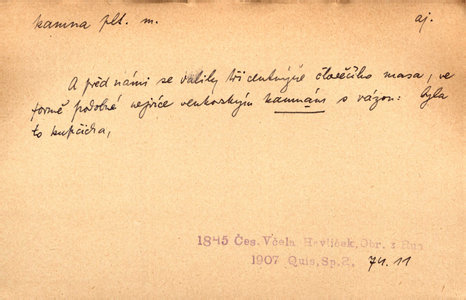 kamna plt. m. aj.
A před námi se valily tři centnýře člověčího masa, ve
formě podobné nejvíce venkovským kamnám s vázou: byla
to kupčicha,
1845 Čes. Včela Havlíček, Obr. z Rus
1907 Quis, Sp. 2, 74.11